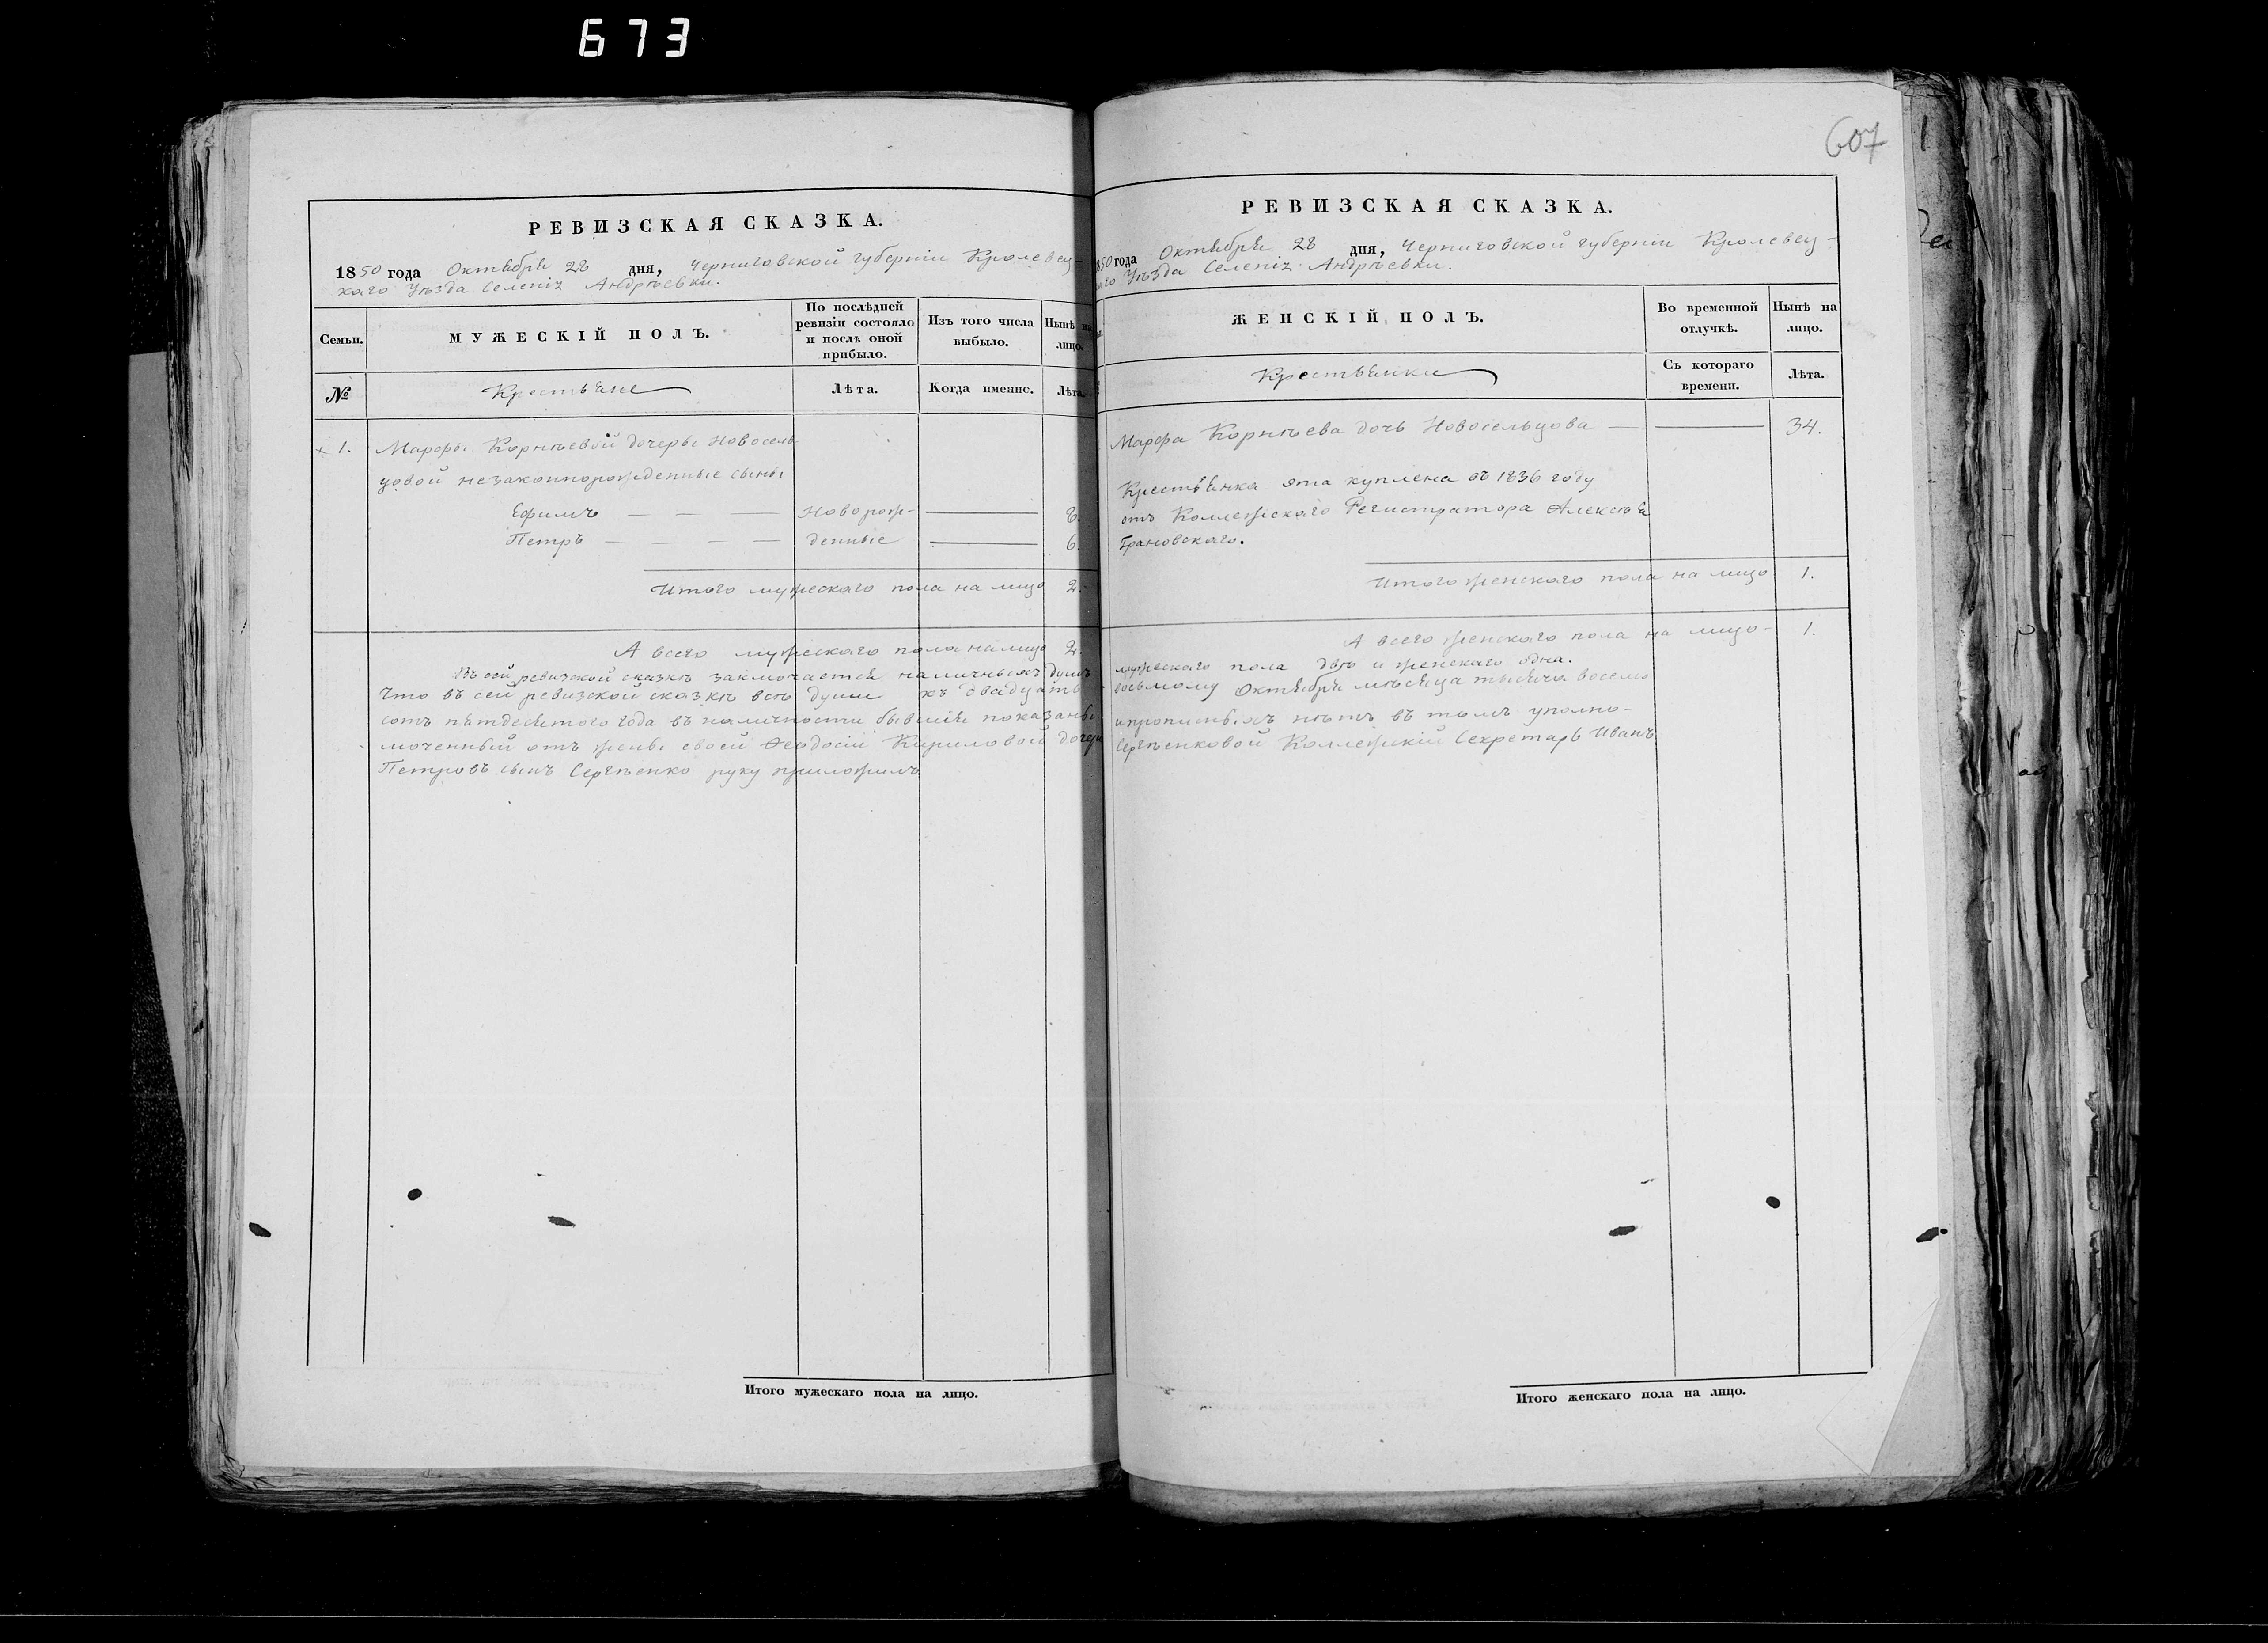 673
РЕВИЗСКАЯ СКАЗКА.
1850 года Октября 28 дня, Черниговской губерніи Кролевец-
каго Уѣзда Селенія Андрѣевки.
Семьи.
МУЖЕСКІЙ ПОЛЪ.
По послѣдней
ревизіи состояло
и послѣ оной
прибыло.
Изъ того числа
выбыло.
Нынѣ на
лицо.
№
Крестьяне
Лѣта.
Когда именно.
Лѣта.
1.
Марфы Корнѣевой дочери Новосель-
цовой незаконнорожденные сыны
Ефимъ — — — Новорож- — 8.
Петръ — — — — денные — 6.
Итого мужескаго пола на лицо 2.
А всего мужескаго пола на лицо 2.
Въ сей ревизской сказкѣ заключается наличныхъ душъ
Что въ сей ревизской сказкѣ всѣ души къ двадцать
сотъ пятдесятого года въ наличности бывшія показаны
моченный отъ жены своей Феодосіи Кириловой дочери
Петровъ сынъ Сергѣенко руку приложилъ
Итого мужескаго пола на лицо.
607
РЕВИЗСКАЯ СКАЗКА.
850 года Октября 28 дня, Черниговской губерніи Кролевец-
каго Уѣзда Селенія Андрѣевки.
ЖЕНСКІЙ ПОЛЪ.
Во временной
отлучкѣ.
Нынѣ на
лицо.
Крестьянки
Съ котораго
времени.
Лѣта.
Марфа Корнѣева дочь Новосельцова — — 34.
Крестьянка эта куплена въ 1836 году
отъ Коллежскаго Регистратора Алексѣя
Грановскаго.
Итого женскаго пола на лицо 1.
А всего женскаго пола на лицо - 1.
мужескаго пола двѣ и женскаго одна.
восьмому Октября мѣсяца тысяча восемь
и прописныхъ нѣтъ въ томъ уполно-
Сергѣенковой Коллежскій Секретарь Иванъ
Итого женскаго пола на лицо.